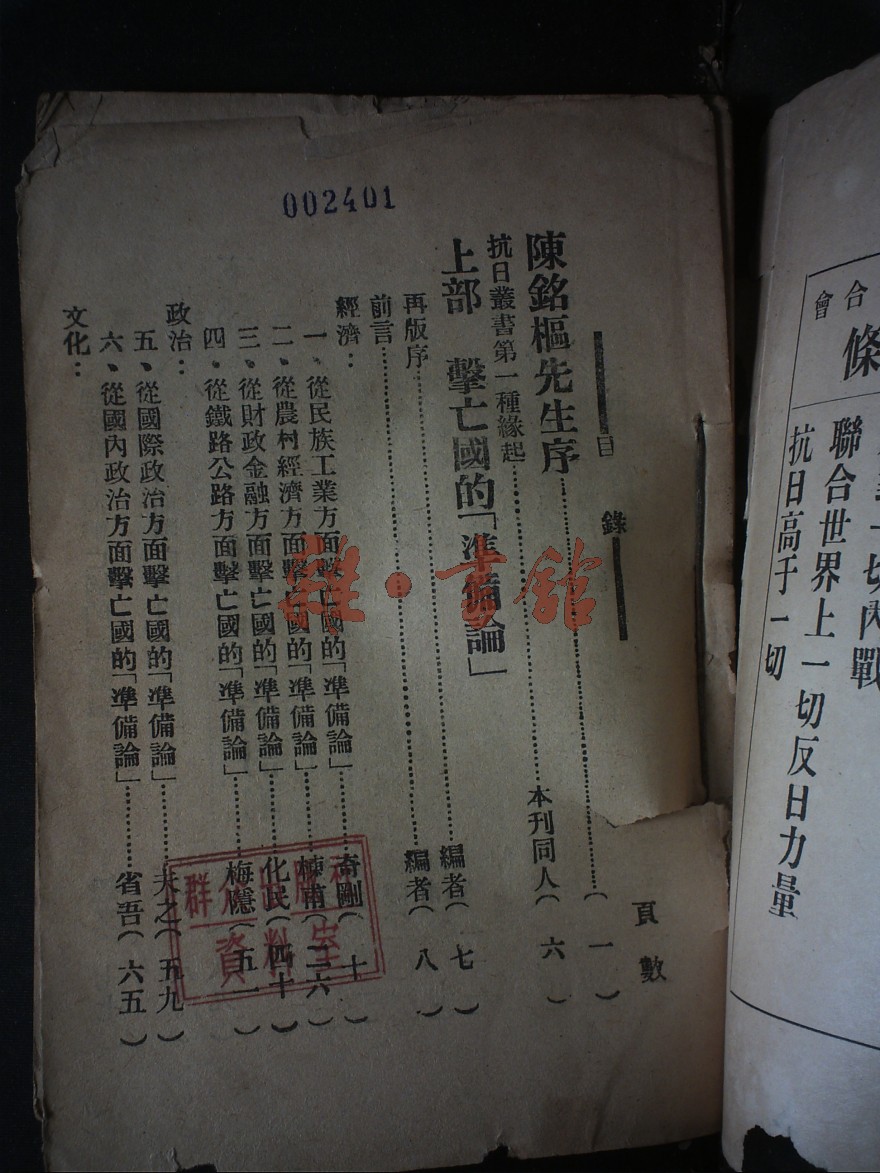 002401
目錄
頁數
陳銘樞先生序……(一)
抗日叢書第一種緣起……本刊同人(六)
上部 擊亡國的「準備論」
再版序……編者(七)
前言……編者(八)
經濟：
一、從民族工業方面擊亡國的「準備論」……奇剛(十)
二、從農村經濟方面擊亡國的「準備論」……楝甫(二六)
三、從財政金融方面擊亡國的「準備論」……化民(四十)
四、從鐵路公路方面擊亡國的「準備論」……梅隱(五一)
政治：
五、從國際政治方面擊亡國的「準備論」……天之(五九)
六、從國內政治方面擊亡國的「準備論」……省吾(六五)
文化：
群众出版社
資料室
雜·書館
一切內戰
聯合世界上一切反日力量
抗日高于一切
條
合會